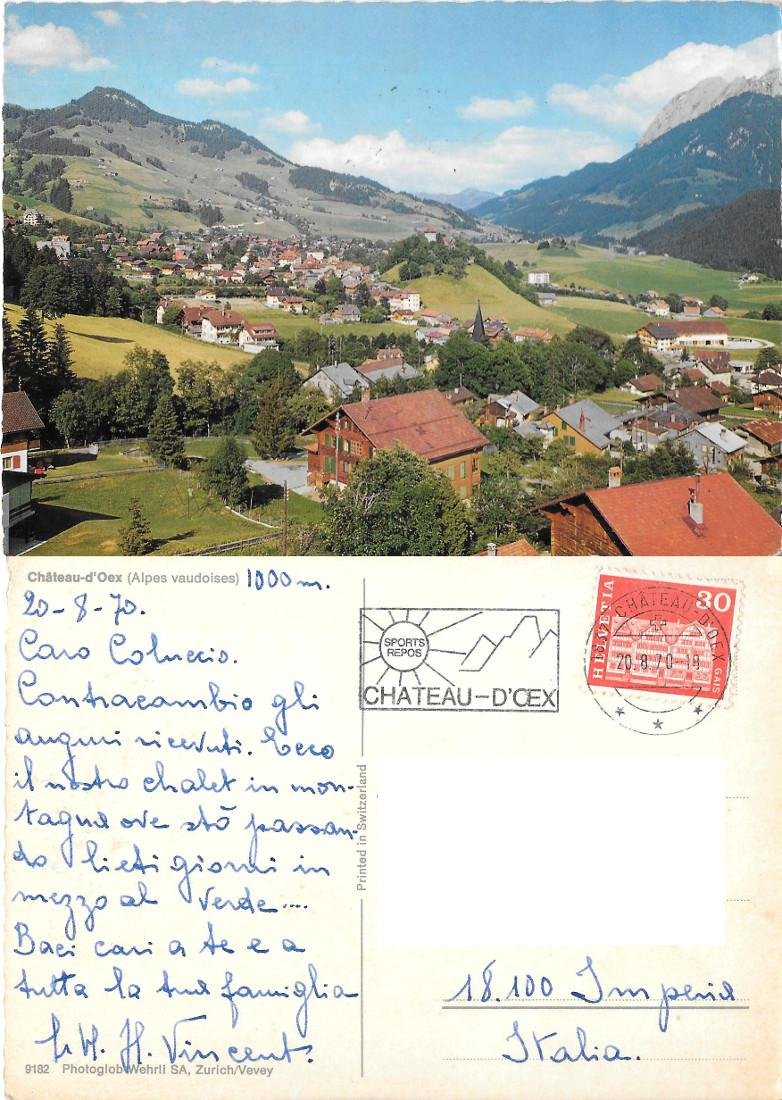 Château-d'Oex (Alpes vaudoises) 1000 m.
20-8-70.
Caro Coluccio.
Contracambio gli
auguri ricevuti. Ecco
il nostro chalet in mon-
tagna ove stò passan-
do lieti giorni in
mezzo al verde....
Baci cari a te e a
tutta la tua famiglia
H. Vincent.
9182 Photoglob-Wehrli SA, Zurich/Vevey
Printed in Switzerland
SPORTS
REPOS
CHATEAU-D'ŒX
HELVETIA
30
GAIS
CHÂTEAU-D'OEX
20.8.70-18
18.100 Imperia
Italia.